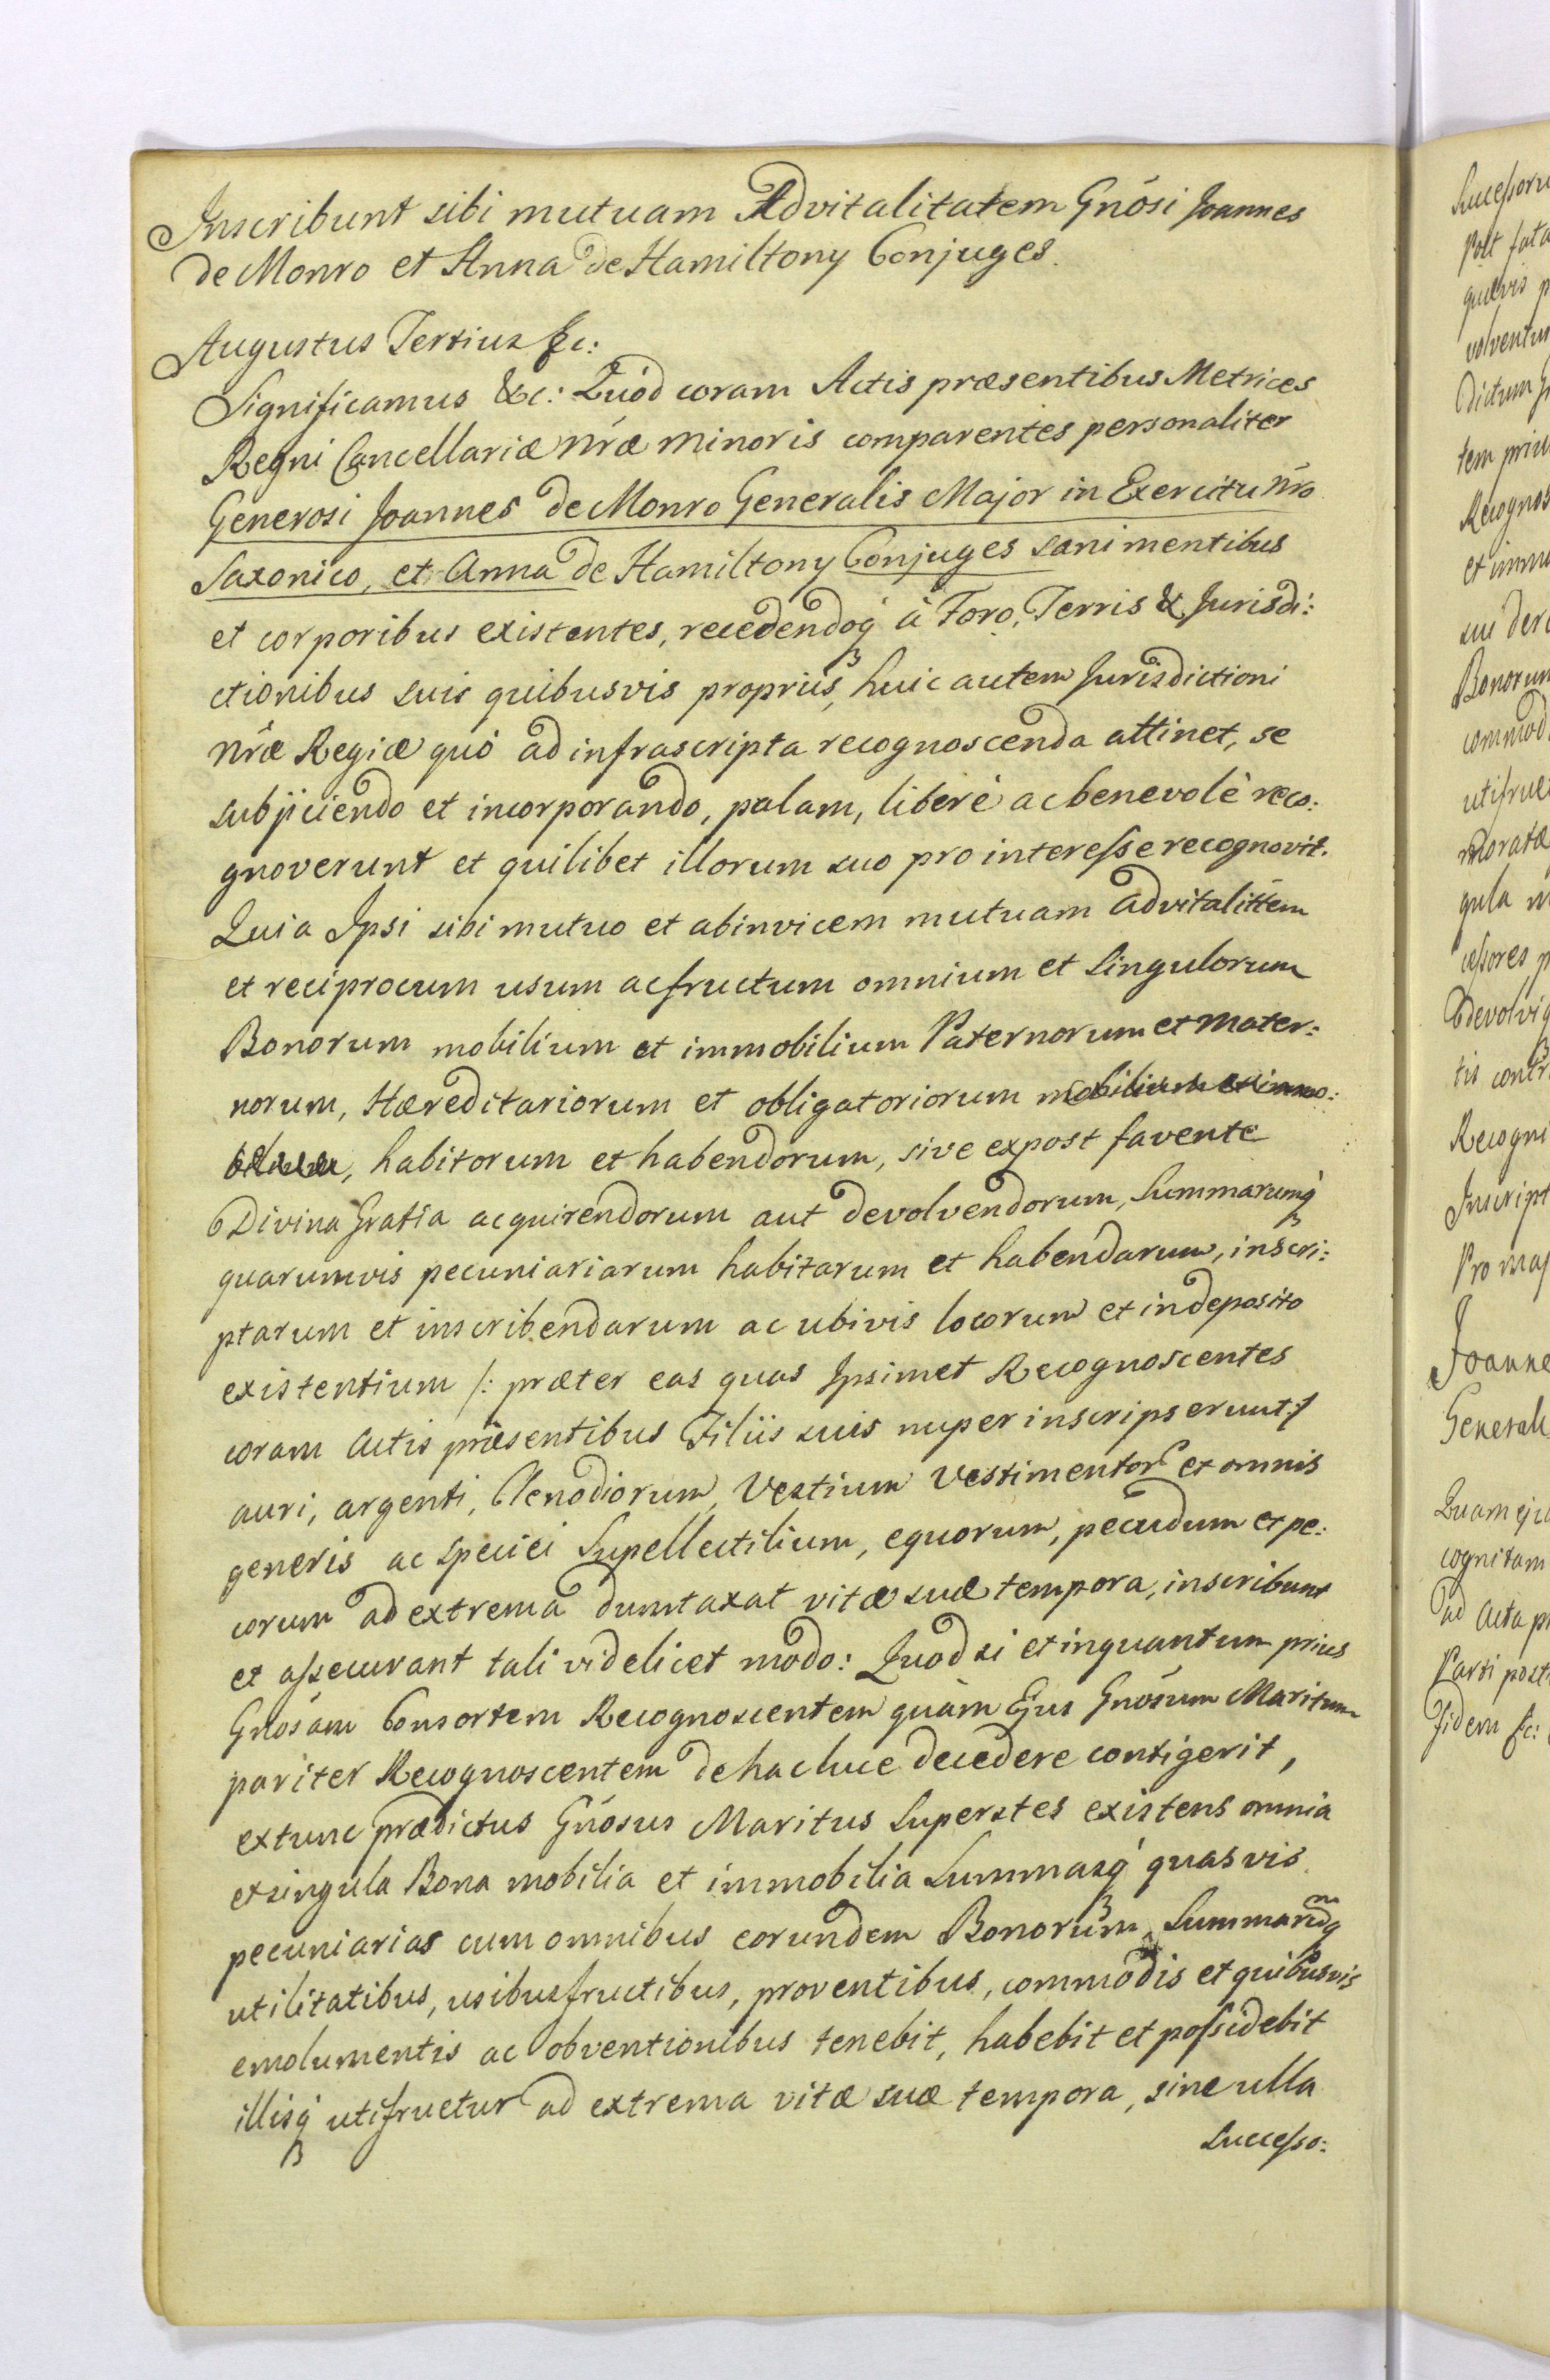 Inscribunt sibi mutuam Advitalitatem Gnósi Joannes
de Monro et Anna de Hamiltony Conjuges.
Augustus Tertius &c:
Significamus &c: Quód coram Actis præsentibus Metrices
Regni Cancellariæ nr̃æ minoris comparentes personaliter
Generosi Joannes de Monro Generalis Major in Exercitu nr̃o
Saxonico, et Anna de Hamiltony Conjuges sani mentibus
et corporibus existentes, recedendoq́ à Foro, Terris & Jurisdi:
ctionibus suis quibusvis propriis, huic autem Jurisdictioni
nr̃æ Regiæ quó ad infrascripta recognoscenda attinet, se
subjiciendo et incorporando, palam, liberè ac benevolè reco:
gnoverunt et quilibet illorum suo pro interesse recognovit.
Quia Ipsi sibi mutuo et abinvicem mutuam advitalit̃em
et reciprocum usum acfructum omnium et singulorum
Bonorum mobilium et immobilium Paternorum et Mater:
norum, Hæreditariorum et obligatoriorum mobilium et immo:
bilium, habitorum et habendorum, sive expost favente
Divina Gratia acquirendorum aut devolvendorum, Summarumq́
quarumvis pecuniariarum habitarum et habendarum, inscri:
ptarum et inscribendarum ac ubivis locorum et indeposito
existentium /: præter eas quas Ipsimet Recognoscentes
coram Actis præsentibus Filiis suis nuper inscripserunt :/
auri, argenti, Clenodiorum, Vestium Vestimentor̃ et omnis
generis ac speciei Supellectilium, equorum, pecudum et pe:
corum ad extrema dumtaxat vitæ suæ tempora, inscribunt
et assecurant tali videlicet modo: Quod si et inquantum prius
Gnósam Consortem Recognoscentem quàm Ejus Gnósum Maritum
pariter Recognoscentem de hac luce decedere contigerit,
extunc prædictus Gnósus Maritus Superstes existens omnia
et singula Bona mobilia et immobilia Summasq́ quasvis
pecuniarias cum omnibus eorundem Bonorum Summarumq́
utilitatibus, usibusfructibus, proventibus, commodis et quibusvis
emolumentis ac obventionibus tenebit, habebit et possidebit
illisq́ utifruetur ad extrema vitæ suæ tempora, sine ulla
Successo:
Post fata
quævis
Bonorum
Joanne
cognitam
ad Acta
Fidem &c: